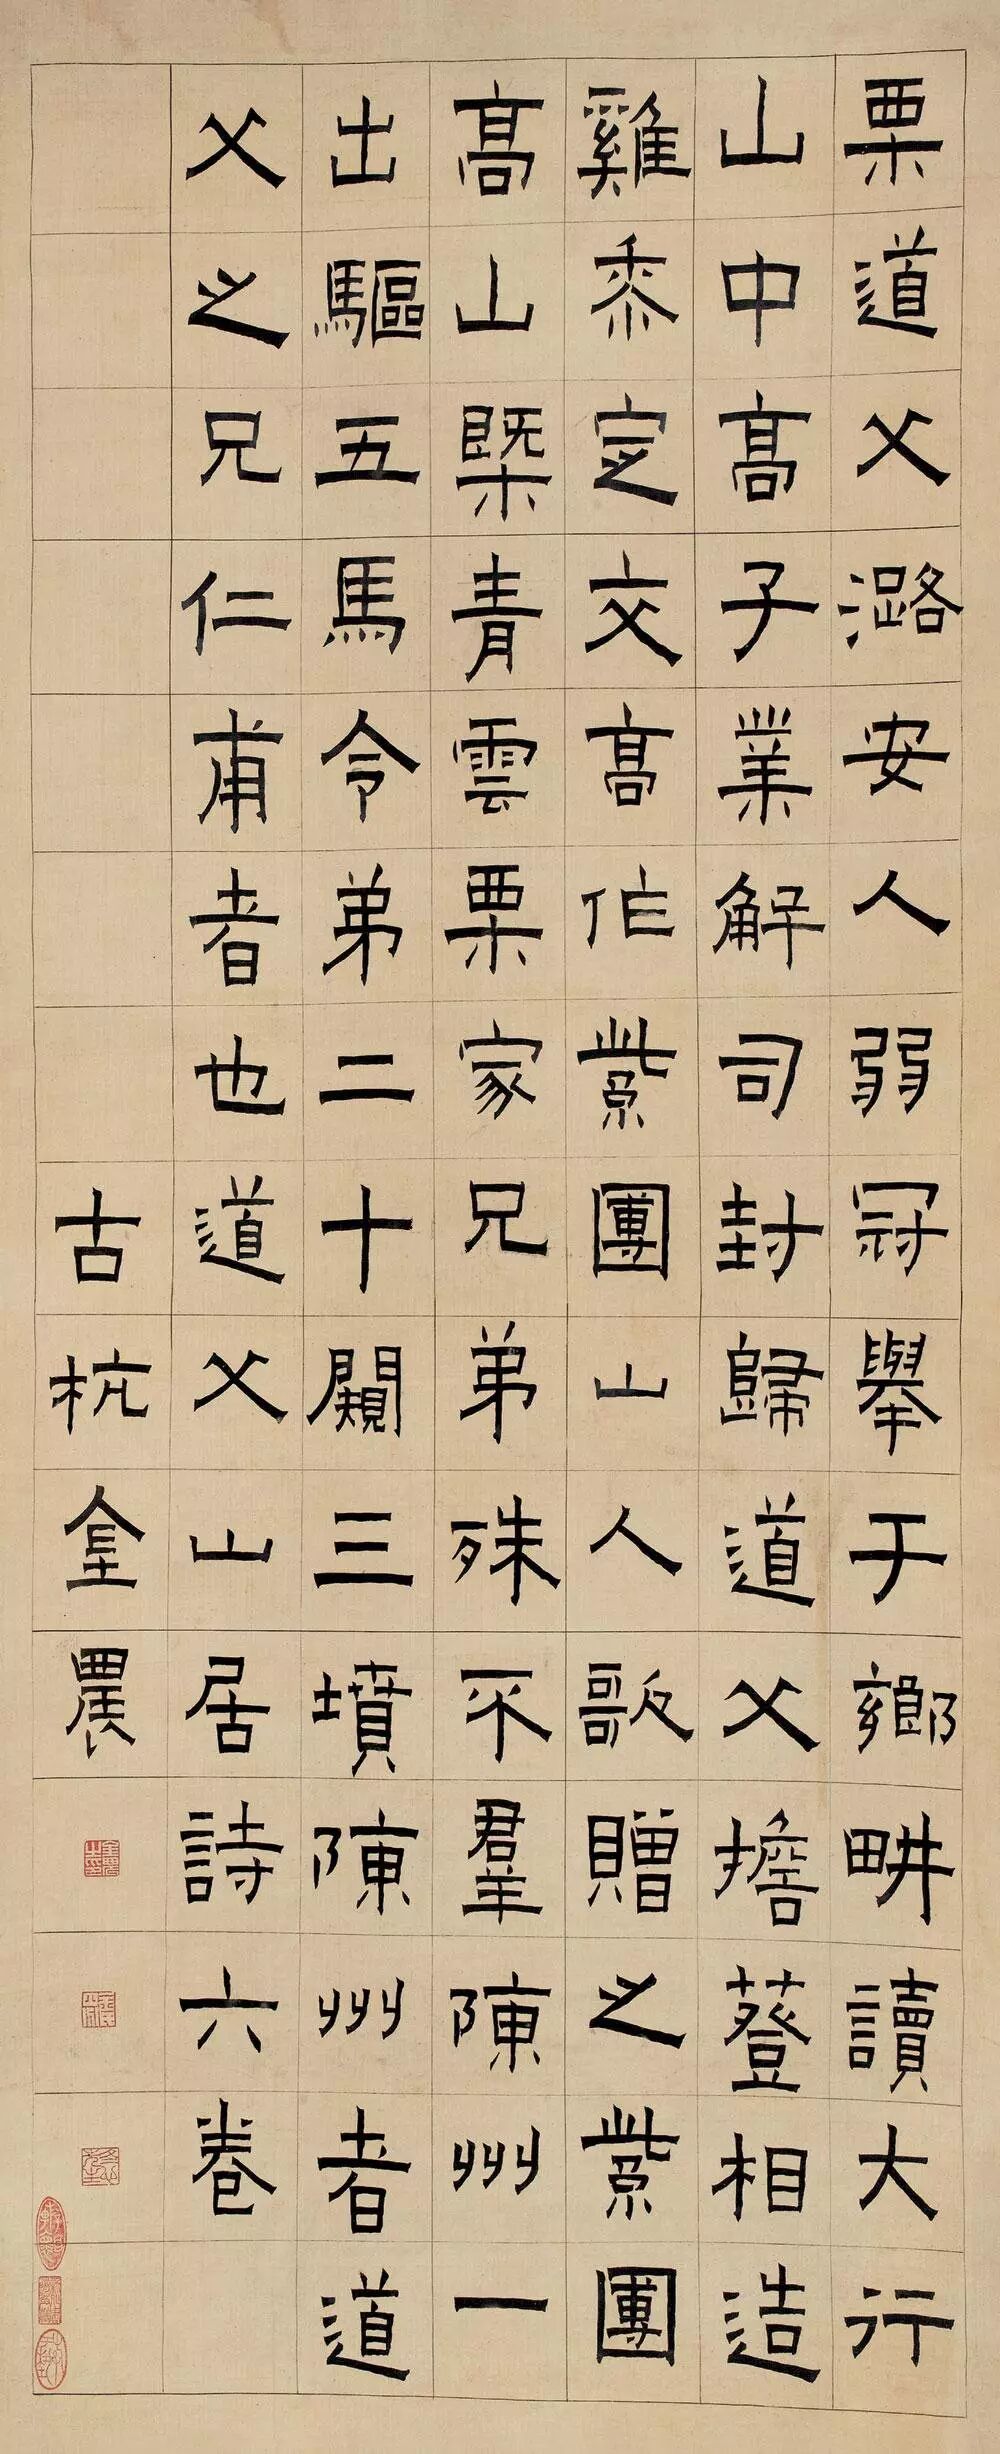 栗道父潞安人弱冠舉于鄉畊讀大行
山中高子業解司封歸道父擔簦相造
雞黍定交高作紫團山人歌贈之紫團
高山槩青雲栗家兄弟殊不羣陳州一
出驅五馬令弟二十闚三墳陳州者道
父之兄仁甫者也道父山居詩六卷
古杭金農